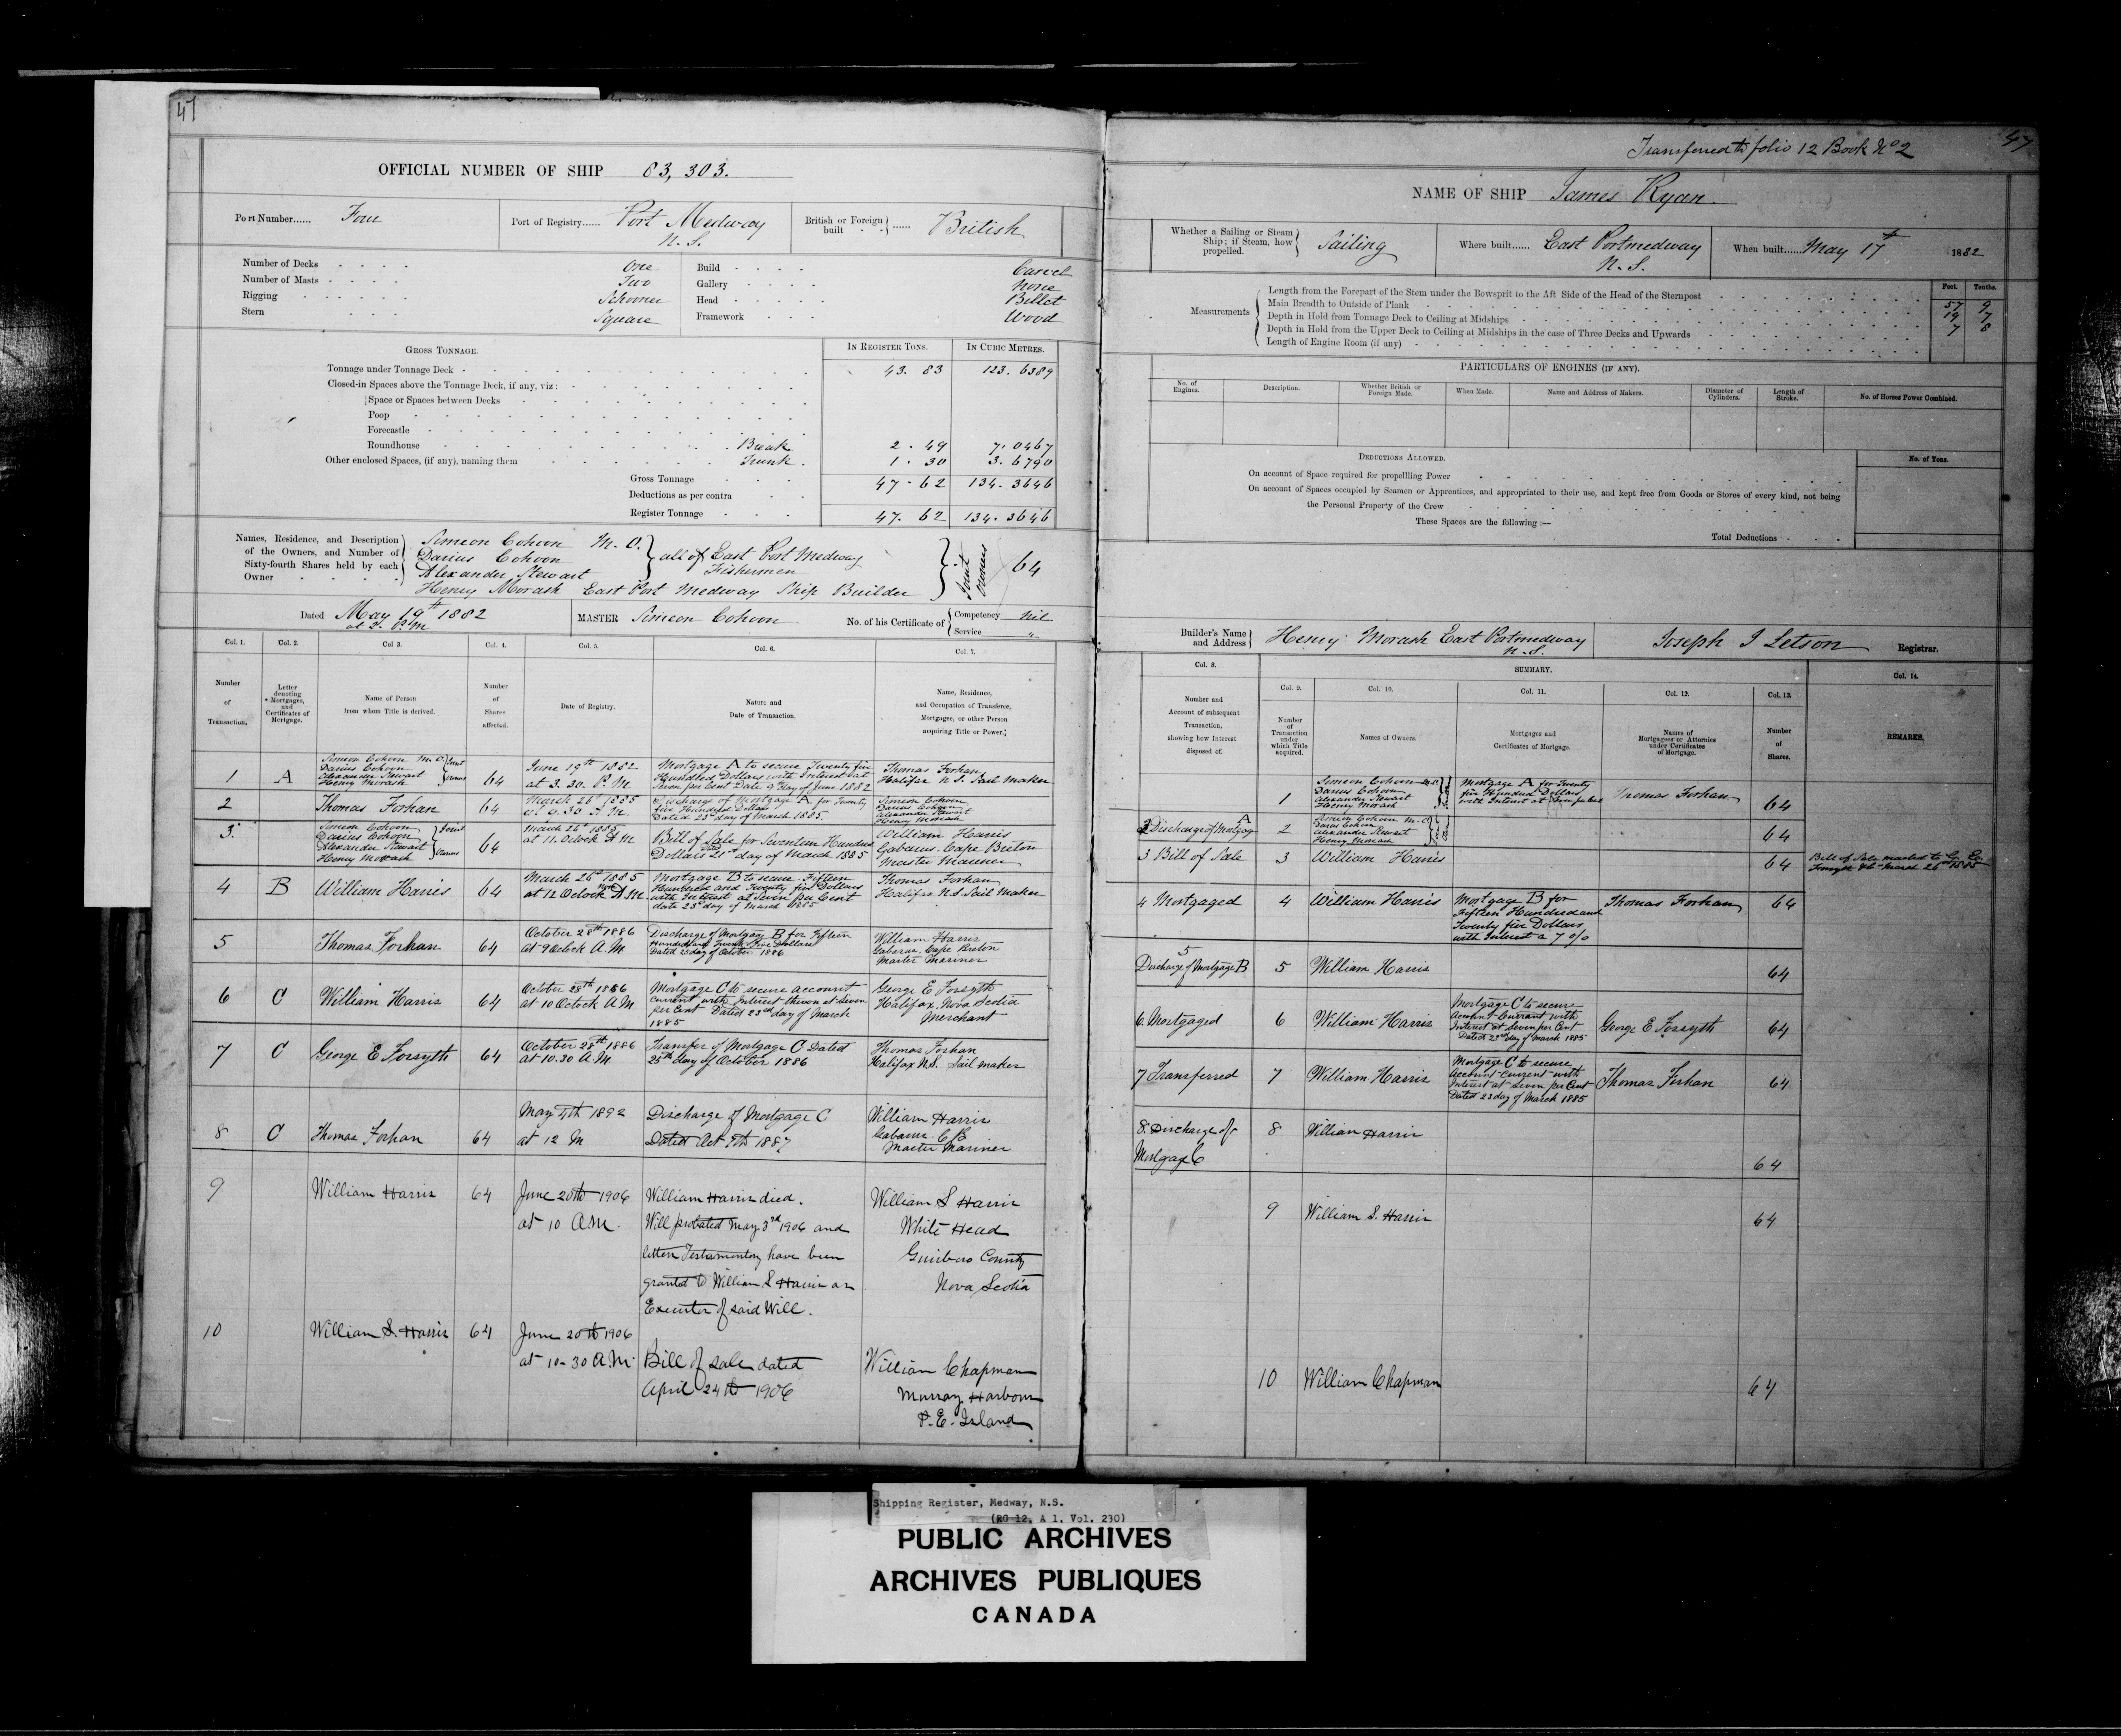 47
OFFICIAL NUMBER OF SHIP 83,303.
Port Number...... Four
Port of Registry...... Port Medway N.S.
British or Foreign built ...... British
Number of Decks One
Number of Masts Two
Rigging Schooner
Stern Square
Build Carvel
Gallery None
Head Billet
Framework Wood
GROSS TONNAGE.
IN REGISTER TONS. IN CUBIC METRES.
Tonnage under Tonnage Deck 43. 83 123. 6389
Closed-in Spaces above the Tonnage Deck, if any, viz:
Space or Spaces between Decks
Poop
Forecastle
Roundhouse Break 2. 49 7. 0467
Other enclosed Spaces, (if any), naming them Trunk. 1. 30 3. 6790
Gross Tonnage 47. 62 134. 3646
Deductions as per contra
Register Tonnage 47. 62 134. 3646
Names, Residence, and Description of the Owners, and Number of Sixty-fourth Shares held by each Owner
Simeon Cohoon M.O.
Darius Cohoon
Alexander Stewart
all of East Port Medway
Fishermen
Henry Morash East Port Medway Ship Builder
Joint Owners 64
Dated May 19th 1882
at 2. P.M
MASTER Simeon Cohoon
No. of his Certificate of Competency Nil
Service "
Col. 1. Col. 2. Col. 3. Col. 4. Col. 5. Col. 6. Col. 7.
Number of Transaction.
Letter denoting Mortgages, and Certificates of Mortgage.
Name of Person from whom Title is derived.
Number of Shares affected.
Date of Registry.
Nature and Date of Transaction.
Name, Residence, and Occupation of Transferee, Mortgagee, or other Person acquiring Title or Power.
1 A
Simeon Cohoon M.O.
Darius Cohoon
Alexander Stewart
Henry Morash
Joint Owners
64
June 19th 1882
at 3. 30. P. M
Mortgage A to secure Twenty five
Hundred Dollars with Interest at
Seven per Cent Date 9 day of June 1882
Thomas Forhan
Halifax N.S. Sail Maker
2
Thomas Forhan 64
March 26 1885
at 9.30 A M
Discharge of Mortgage A for Twenty
five Hundred Dollars
Dated 23d day of March 1885
Simeon Cohoon
Darius Cohoon
Alexander Stewart
Henry Morash
3
Simeon Cohoon
Darius Cohoon
Alexander Stewart
Henry Morash
Joint Owners
64
March 26th 1885
at 11. Oclock A M
Bill of Sale for Seventeen Hundred
Dollars 21st day of March 1885
William Harris
Gabarus Cape Breton
Master Mariner
4 B William Harris 64
March 26th 1885
at 12 Oclock
Mortgage B to secure Fifteen
Hundred and Twenty five Dollars
with Interest at Seven per Cent
date 23d day of March 1885
Thomas Forhan
Halifax N.S. Sail Maker
5 Thomas Forhan 64
October 28th 1886
at 9 Oclock A.M
Discharge of Mortgage B for Fifteen
Hundred and Twenty five Dollars
Dated 25 day of October 1886
William Harris
Gabarus Cape Breton
Master Mariner
6 C William Harris 64
October 28th 1886
at 10 Oclock A M
Mortgage C to secure account
Current with Interest thereon at seven
per Cent Dated 23rd day of March
1885
George E Forsyth
Halifax, Nova Scotia
Merchant
7 C George E Forsyth 64
October 28th 1886
at 10.30 A.M.
Transfer of Mortgage C Dated
25th day of October 1886
Thomas Forhan
Halifax N.S. Sail maker
8 C Thomas Forhan 64
May 4th 1892
at 12 M
Discharge of Mortgage C
Dated Oct 9th 1887
William Harris
Gabarus C.B
Master Mariner
9 William Harris 64
June 20th 1906
at 10 AM.
William Harris died.
Will probated May 3rd 1906 and
letters Testamentary have been
granted to William S Harris as
Executor of said Will.
William S Harris
White Head
Guisboro County
Nova Scotia
10 William S. Harris 64
June 20th 1906
at 10-30 A M.
Bill of sale dated
April 24th 1906
William Chapman
Murray Harbour
P.E. Island
47
Transferred to folio 12 Book No 2
NAME OF SHIP James Ryan.
Whether a Sailing or Steam Ship; if Steam, how propelled. Sailing
Where built...... East Portmedway N.S.
When built...... May 17th 1882
Measurements
Feet. Tenths.
Length from the Forepart of the Stem under the Bowsprit to the Aft Side of the Head of the Sternpost 57 9
Main Breadth to Outside of Plank 19 7
Depth in Hold from Tonnage Deck to Ceiling at Midships 7 8
Depth in Hold from the Upper Deck to Ceiling at Midships in the case of Three Decks and Upwards
Length of Engine Room (if any)
PARTICULARS OF ENGINES (IF ANY).
No. of Engines. Description. Whether British or Foreign Made. When Made. Name and Address of Makers. Diameter of Cylinders. Length of Stroke. No. of Horses Power Combined.
DEDUCTIONS ALLOWED. No. of Tons.
On account of Space required for propellling Power
On account of Spaces occupied by Seamen or Apprentices, and appropriated to their use, and kept free from Goods or Stores of every kind, not being
the Personal Property of the Crew
These Spaces are the following :—
Total Deductions
Builder's Name and Address Henry Morash East Portmedway N.S.
Joseph I Letson Registrar.
Col. 8. SUMMARY. Col. 14.
Col. 9. Col. 10. Col. 11. Col. 12. Col. 13.
Number and Account of subsequent Transaction, showing how Interest disposed of.
Number of Transaction under which Title acquired.
Names of Owners.
Mortgages and Certificates of Mortgage.
Names of Mortgagees or Attornies under Certificates of Mortgage.
Number of Shares.
REMARKS.
1
Simeon Cohoon M.O.
Darius Cohoon
Alexander Stewart
Henry Morash
Mortgage A for Twenty
five Hundred Dollars
with Interest at Seven per Cent
Thomas Forhan 64
2 Discharge of Mortgage A 2
Simeon Cohoon M.O.
Darius Cohoon
Alexander Stewart
Henry Morash
64
3 Bill of Sale 3 William Harris 64
4 Mortgaged 4 William Harris
Mortgage B for
Fifteen Hundred and
Twenty five Dollars
with Interest a 7 o/o
Thomas Forhan 64
5
Discharge of Mortgage B 5 William Harris 64
6. Mortgaged 6 William Harris
Mortgage C to secure
Account Currant with
Interest at Seven per Cent
Dated 23rd day of March 1885
George E Forsyth 64
7 Transferred 7 William Harris
Mortgage C to secure
Account Current with
Interest at seven per Cent
Dated 23 day of March 1885
Thomas Forhan 64
8. Discharge of
Mortgage C
8 William Harris 64
9 William S. Harris 64
10 William Chapman 64
Shipping Register, Medway, N.S.
(RG 12, A 1, Vol. 230)
PUBLIC ARCHIVES
ARCHIVES PUBLIQUES
CANADA